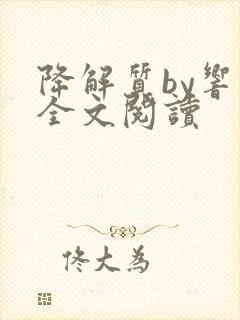 降解質by響
全文閱讀
佟大為